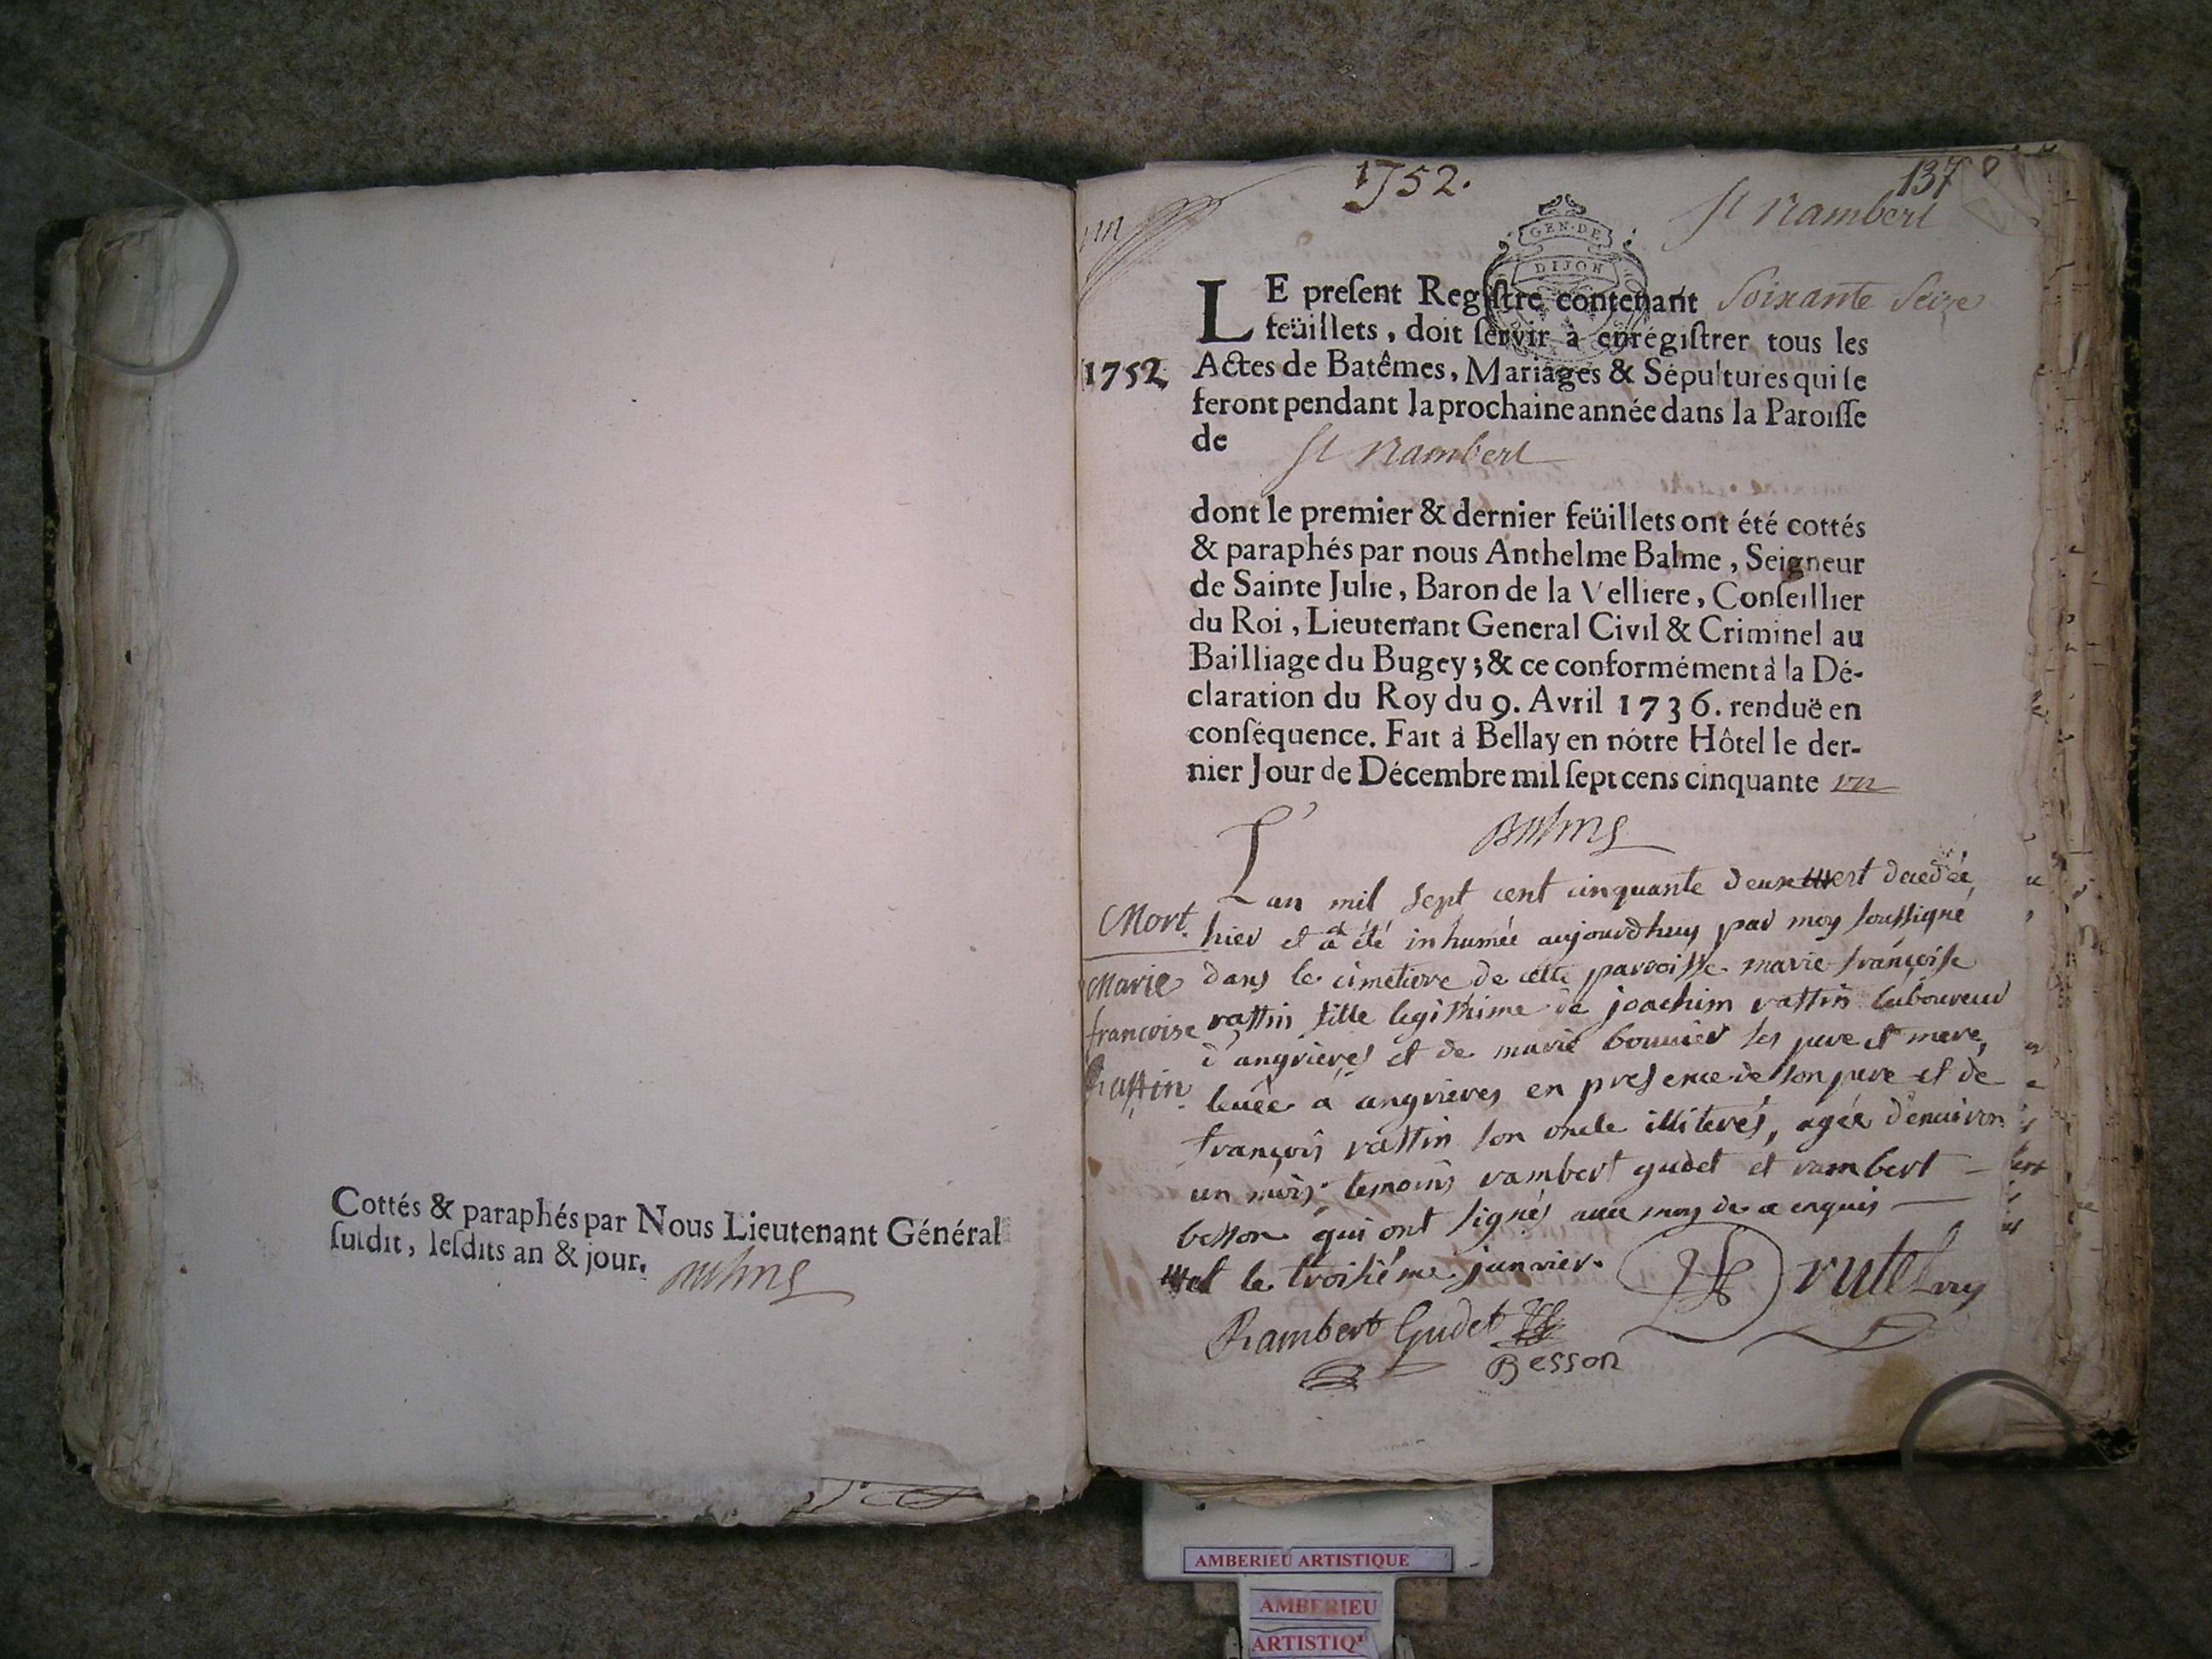 Cottés & paraphés par Nous Lieutenant Général
susdit, lesdits an & jour.
1752.
137
St Rambert
GEN·DE
DIJON
LE preſent Regiſtre contenant soixante seize
feüillets, doit ſervir à enrégiſtrer tous les
1752 Actes de Batêmes, Mariages & Sépultures qui ſe
feront pendant la prochaine année dans la Paroiſſe
de St Rambert
dont le premier & dernier feüillets ont été cottés
& paraphés par nous Anthelme Balme, Seigneur
de Sainte Julie, Baron de la Velliere, Conſeillier
du Roi, Lieutenant General Civil & Criminel au
Bailliage du Bugey; & ce conformément à la Dé-
claration du Roy du 9. Avril 1736. renduë en
conſéquence. Fait à Bellay en nôtre Hôtel le der-
nier Jour de Décembre mil ſept cens cinquante un
Balme
L'an mil sept cent cinquante deux est decedée
Mort. hier et a été inhumée aujourdhuy par moy soussigné
Marie dans le cimetiere de cette parroisse marie françoise
françoise rastin fille legithime de joachim rastin laboureur
Rastin d'angrieres et de marie bouvier ses pere et mere,
levée a angrieres en presence de son pere et de
françois rastin son oncle illiterés, agée d'environ
un mois. temoins rambert gudet et rambert
besson qui ont signés avec moy de ce enquis
et le troisiéme janvier.
Rambert Gudet
Besson